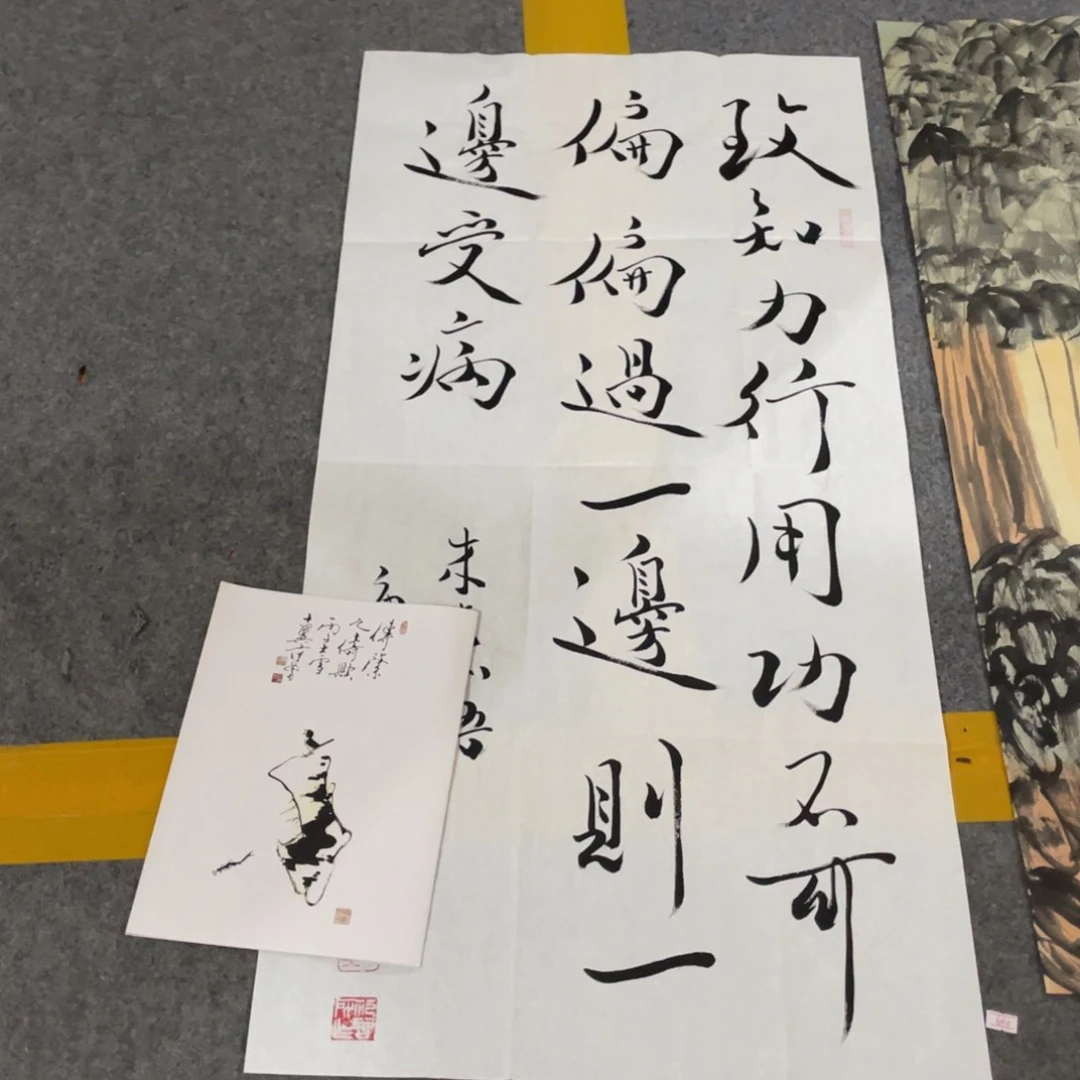 致知力行用功不可
偏偏過一邊則一
邊受病
朱
語